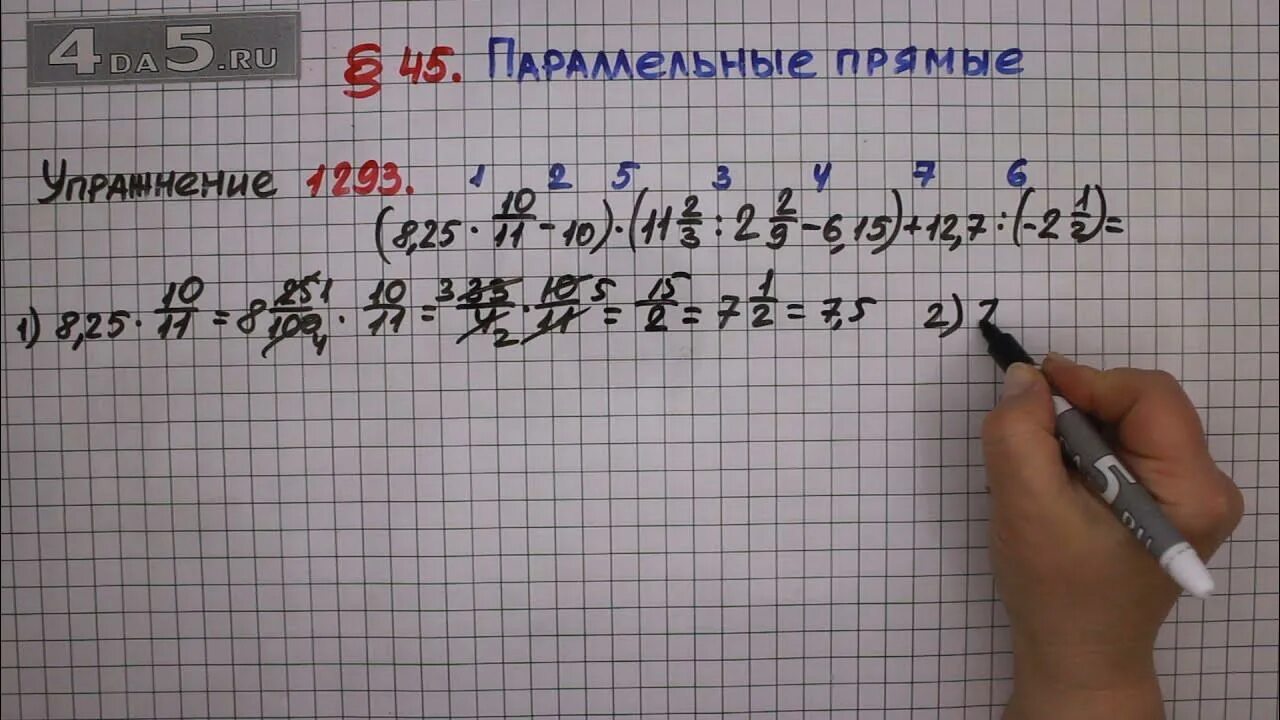 4DA5.RU
§ 45. Параллельные прямые
Упражнение 1293. 1 2 5 3 4 7 6
(8,25 · 10/11 - 10) · (11 2/3 : 2 2/9 - 6,15) + 12,7 : (-2 1/2) =
1) 8,25 · 10/11 = 8 25 1/100 4 · 10/11 = 3 33/4 2 · 10 5/11 = 15/2 = 7 1/2 = 7,5 2) 7